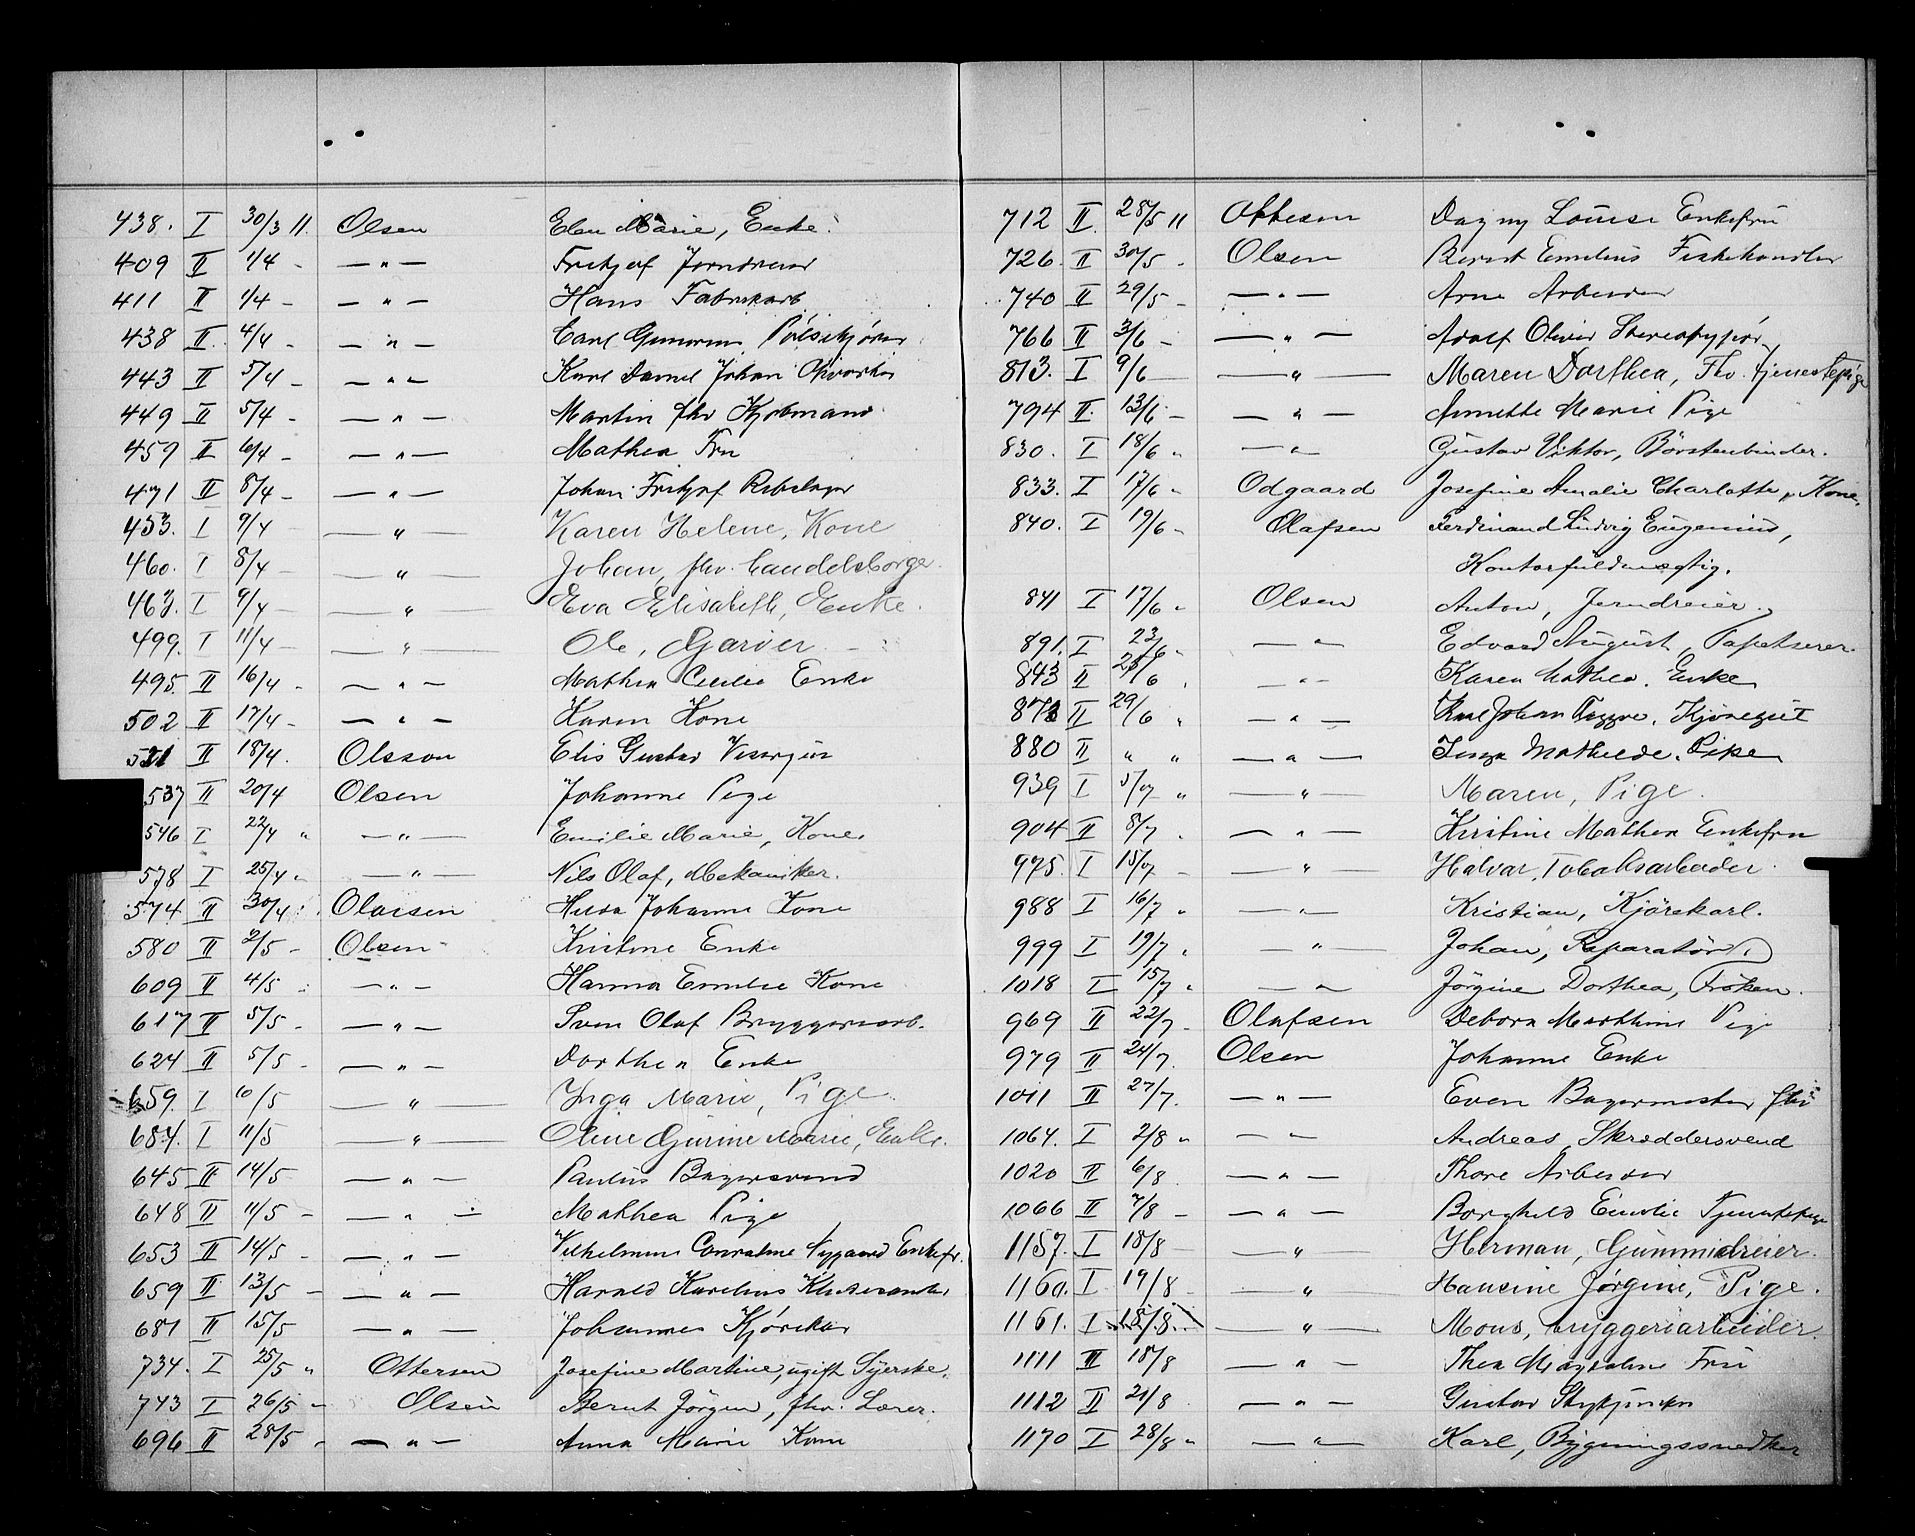 438. I 30/3 11. Olsen Elen Marie, Enke.
409 II 1/4 - — " — Fritjof Jerndreier
411 II 1/4 - — " — Hans Fabrikarb
438 II 4/4 - — " — Carl Gunerius
443 II 5/4 - — " — Karl Daniel Johan
449 II 5/4 - — " — Martin fhv Kjøbmand
459 II 6/4 - — " — Mathea Fru
471 II 8/4 - — " — Johan Fritjof Rebslager
453. I 9/4 — " — Karen Helene, Kone
460. I 8/4 — " — Johan, fhv. handelsborger.
463. I 9/4 - — " — Eva Elisabeth, Enke.
499. I 11/4 - — " — Ole, Garver
495. II 16/4 - — " — Mathea Cecilie Enke
502 II 17/4 - — " — Karen Kone
521 II 18/4. Olsson Elis Gustav Visergut
537 II 20/4 Olsen Johanne Pige
546 I 22/4 " — " — Emilie Marie, Kone
578 I 25/4 " — " — Nils Olaf, Mekaniker.
574 II 30/4 Olaisen Hilda Johanne Kone
580 II 2/5 - Olsen Kristine Enke
609 II 4/5 — " — Hanna Emilie Kone
617 II 5/5 - — " — Sven Olaf Bryggeriarb.
624 II 5/5 - — " — Dorthea Enke
659. I 10/5 — " — Inga Marie, Pige.
684. I 11/5 — " — Oline Gurine Marie, Enke.
645 II 14/5 — " — Paulus Bagersvend
648 II 11/5 - — " — Mathea Pige
653 II 14/5 - — " — Vilhelmine Conradine Nygaard Enkefr.
659 II 13/5 - — " — Harald Karelius
681 II 15/5 — " — Johannes Kjørekar
734. I 25/5 " Ottersen Josefine Martine, ugift Syerske.
743 I 26/5 - Olsen Bernt Jörgen, fhv. Lærer.
696 II 28/5 - — " — Anna Marie Kone
712 II 28/5 11 Ottesen Dagny Louise Enkefru
726. II 30/5 - Olsen Bernt Emelius Fiskehandler
740 II 29/5 - — " — Arne Arbeider
766 II 3/6 - — " — Adolf Oliver Stereotypør
813. I 9/6 — — " — Maren Dorthea, Fhv. tjenestepige
794 II 13/6 - — " — Annette Marie Pige
830. I 18/6 " — " — Gustav Viktor, Börstenbinder.
833. I 17/6 " Odgaard Josefine Amalie Charlotte, Kone.
840. I 19/6 " Olafsen Ferdinand Ludvig Eugenius,
Kontorfuldmægtig.
841 I 17/6 " Olsen Anton, Jerndreier.
891. I 23/6 " — " — Edvard August, Tapetserer.
843 II 25/6 — " — Karen Mathea. Enke
878 II 29/6 " — " — Karl Johan Trygve. Kjøregut
880 II " " — " — Inga Mathilde. Pike
939 I 5/7 " — " — Maren, Pige.
904 II 8/7 — " — Kirstine Mathea Enkefru
975. I 15/7 - — " — Halvar, Tobaksarbeider.
988 I 16/7 " — " — Kristian, Kjörekarl.
999 I 19/7 " — " — Johan, Reparatör
1018 I 15/7 " — " — Jörgine Dorthea, Fröken.
969 II 22/7 - Olafsen Debora Marthine Pige
979 II 24/7. Olsen Johanne Enke
1011 II 27/7. — " — Even Bagermester fhv
1064. I 2/8 " — " — Andreas, Skræddersvend
1020 II 6/8 — " — Thore Arbeider
1066 II 7/8 - — " — Borghild Emilie Tjenestepige
1157. I 18/8 — " — Herman, Gummidreier.
1160. I 19/8 — " — Hansine Jørgine, Pige.
1161. I 18/8. — " — Mons, bryggeriarbeider.
1111 II 18/8 — " — Thea Magdalene Fru
1112 II 21/8 — " — Gustav
1170 I 28/8 " — " — Karl, Bygningssnedker